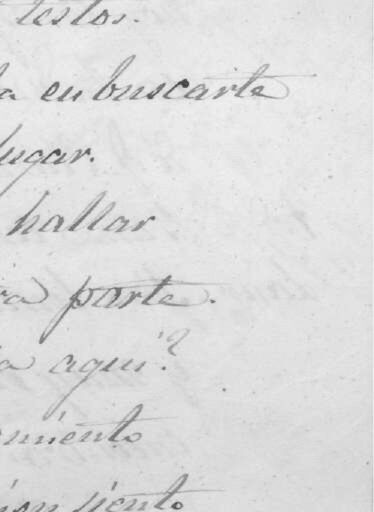 testos.
a en buscarte
lugar.
hallar
ra parte.
a aquí?
miento
siento